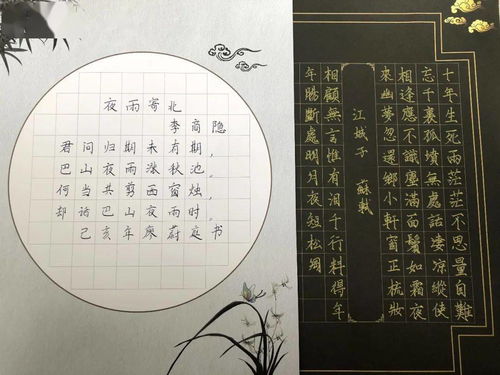 夜雨寄北
李商隐
君问归期未有期，
巴山夜雨涨秋池。
何当共剪西窗烛，
却话巴山夜雨时。
己亥年廖蔚庭书
十年生死兩茫茫不思量自難
忘千裏孤墳無處話淒涼縱使
相逢應不識塵滿面鬢如霜夜
來幽夢忽還鄉小軒窗正梳妝
江城子 蘇軾
相顧無言惟有淚千行料得年
年腸斷處明月夜短松岡